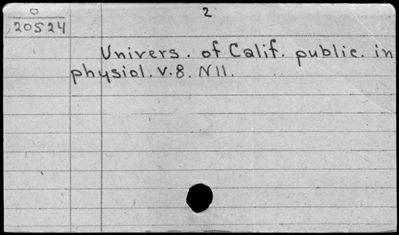 O
20524
2
Univers. of Calif. public. in
physiol. v.8. N11.